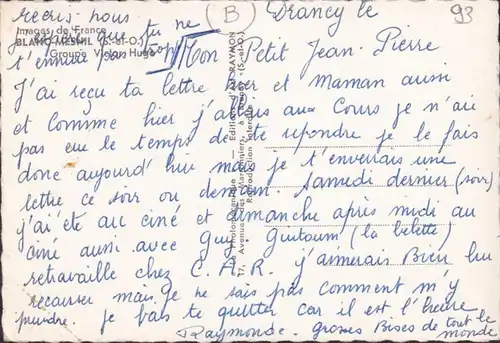 recris-nous
j'espère que tu ne
t'ennuie pas trop
Images de France
BLANC-MESNIL (S.-et-O.)
Groupe Victor Hugo
B
93
Drancy le
Mon Petit Jean-Pierre
J'ai reçu ta lettre hier et Maman aussi
et comme hier j'allais aux cours je n'ai
pas eu le temps de te repondre je le fais
donc aujourd'hui mais je t'enverrais une
lettre ce soir ou demain. Samedi dernier (soir)
j'ai été au ciné et dimanche après midi au
ciné aussi avec Guy. Guitoum (la belette)
retravaille chez C.A.R. j'aimerais Bien lui
recauser mais je ne sais pas comment m'y
prendre. je vais te quitter car il est l'heure
Raymonde. Grosses Bises de tout le
monde